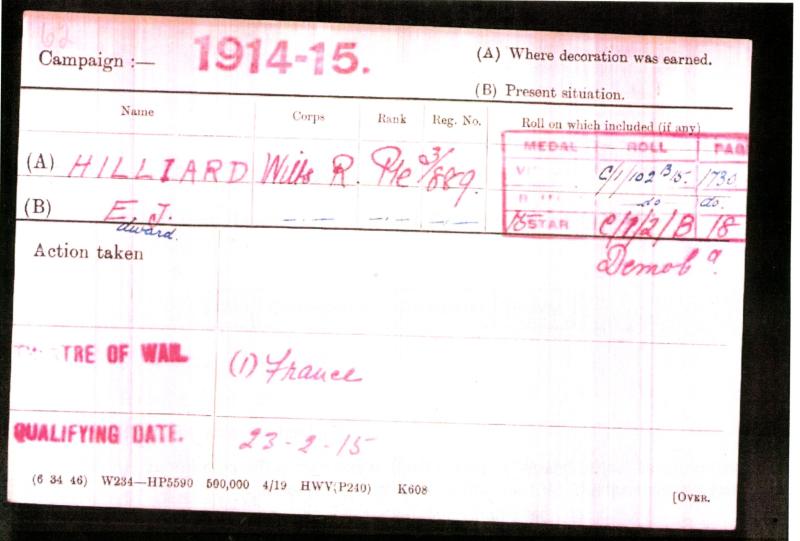 62
Campaign :— 1914-15. (A) Where decoration was earned.
(B) Present situation.
Name Corps Rank Reg. No. Roll on which included (if any)
MEDAL ROLL PAGE
(A) HILLIARD Wilts R. Pte 3/889. C/1/102 B15. 1730
do do.
(B) E. J. —.— —.— —.— 15 STAR C/1/2/B 18
award.
Demob a.
Action taken
TRE OF WAR. (1) France
QUALIFYING DATE. 23-2-15
(6 34 46) W234—HP5590 500,000 4/19 HWV(P240) K608
[OVER.